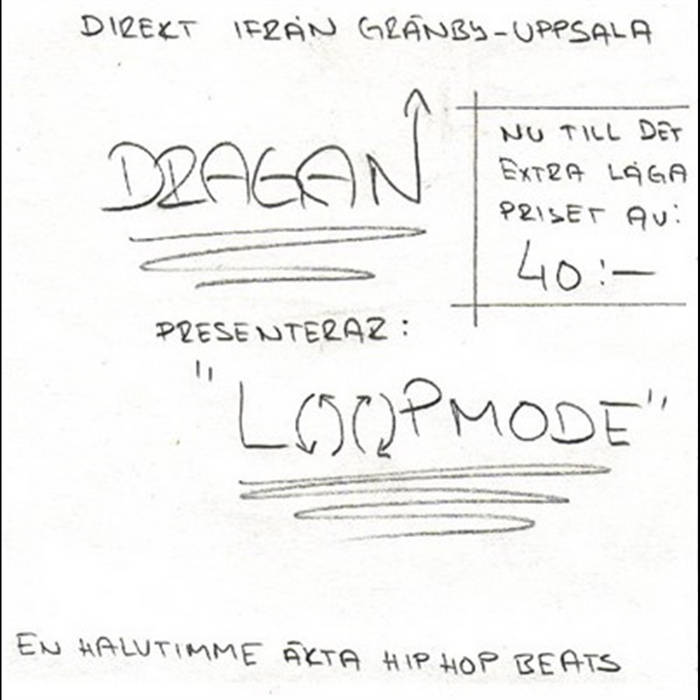 DIREKT IFRÅN GRÄNBY-UPPSALA
DRAGAN
NU TILL DET
EXTRA LÅGA
PRISET AV:
40:-
PRESENTERAR:
"LOOPMODE"
EN HALVTIMME ÄKTA HIPHOP BEATS